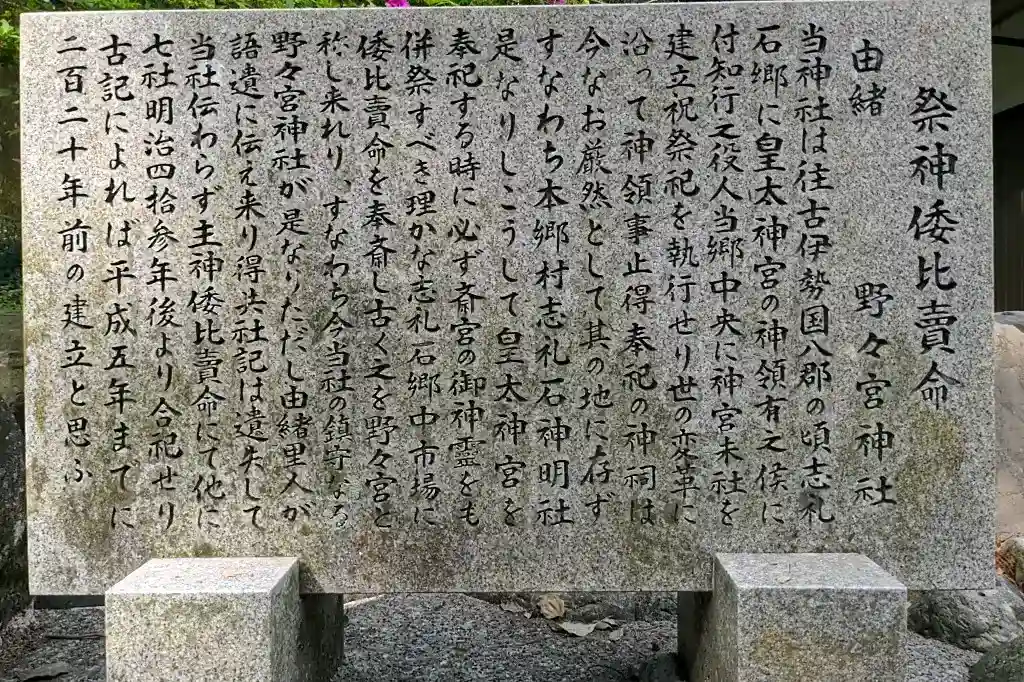 祭神倭比賣命
由緒　野々宮神社
当神社は往古伊勢国八郡の頃志礼
石郷に皇太神宮の神領有之侯に
付知行之役人当郷中央に神宮末社を
建立祝祭祀を執行せり世の変革に
沿って神領事止得奉祀の神祠は
今なお厳然として其の地に存ず
すなわち本郷村志礼石神明社
是なりしこうして皇太神宮を
奉祀する時に必ず斎宮の御神霊をも
併祭すべき理かな志礼石郷中市場に
倭比賣命を奉斎し古く之を野々宮と
称し来れり、すなわち今当社の鎮守なる
野々宮神社が是なりただし由緒里人が
語遺に伝え来り得共社記は遺失して
当社伝わらず主神倭比賣命にて他に
七社明治四拾参年後より合祀せり
古記によれば平成五年までに
二百二十年前の建立と思ふ